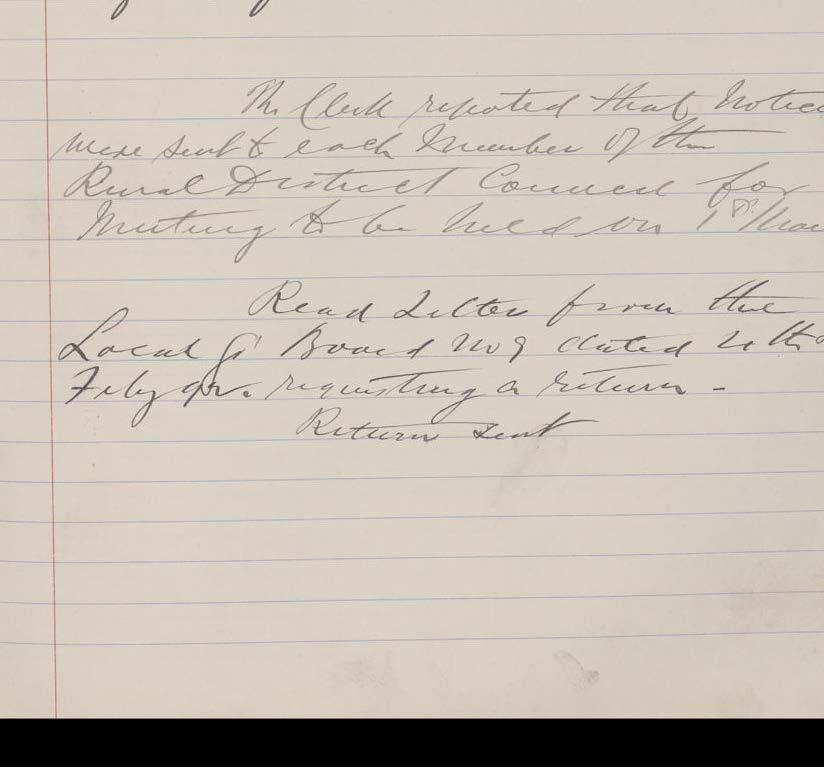 The Clerk reported that Notice
were sent to each Member of the
Rural District Council for
Meeting to be held on 1st Mar
Read Letter from the
Local G Board No 9 dated 20th
Feby requesting a return -
Return sent